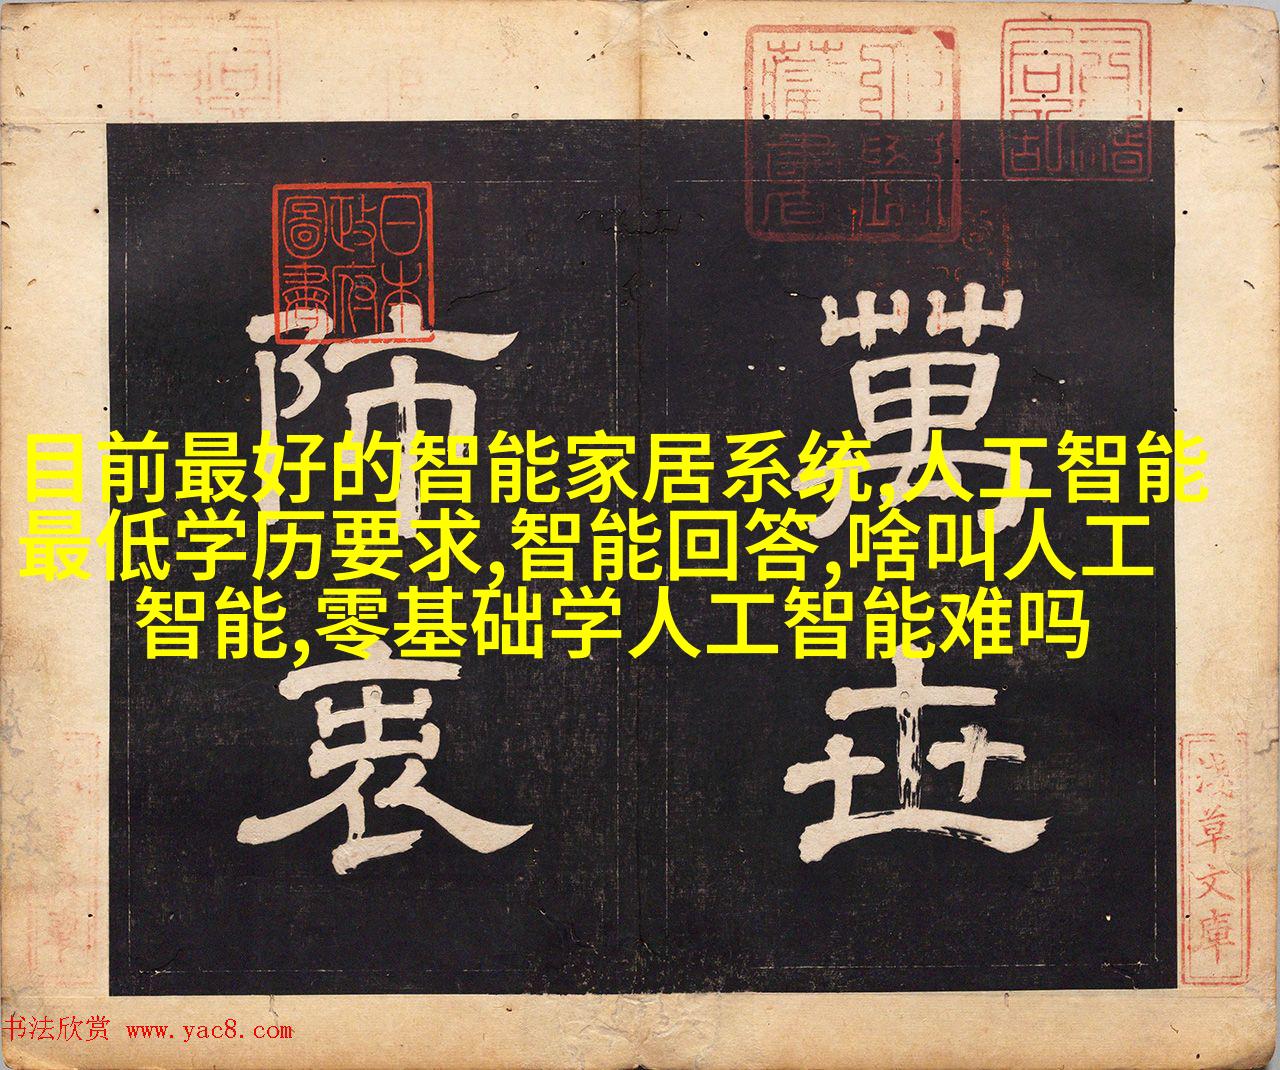 目前最好的智能家居系统,人工智能
最低学历要求,智能回答,啥叫人工
智能,零基础学人工智能难吗
萬世
師表
日本
政府
圖書
淺草文庫
书法欣赏 www.yac8.com